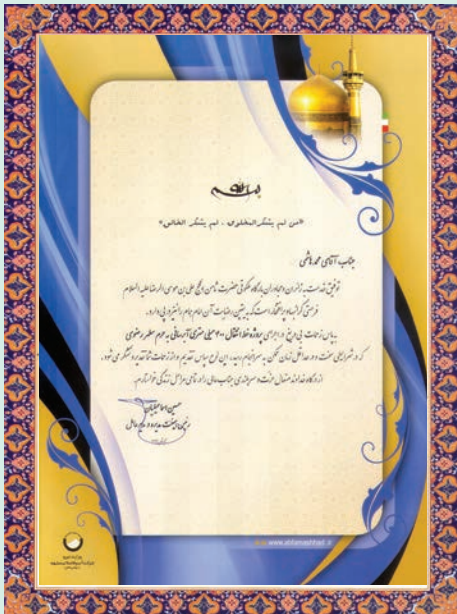 بسم الله
«من لم یشکر المخلوق ، لم یشکر الخالق»
جناب آقای محمد هاشمی
توفیق خدمت به زائران و مجاوران بارگاه ملکوتی حضرت ثامن الحجج علی بن موسی الرضا علیه السلام
فرصتی گرانبها و پر افتخار است که به یقین رضایت آن امام همام را نیز در پی دارد.
به پاس زحمات بی دریغ در اجرای پروژه خط انتقال ۴۰۰ میلی متری آبرسانی به حرم مطهر رضوی
که در شرایطی سخت و در حداقل زمان ممکن به سرانجام رسید، این لوح سپاس تقدیم و از زحمات شما تقدیر و تشکر می شود.
از درگاه خداوند متعال عزت و سربلندی جناب عالی را در تمامی مراحل زندگی خواستارم.
حسین اسماعیلیان
رئیس هیئت مدیره و مدیر عامل
www.abfamashhad.ir